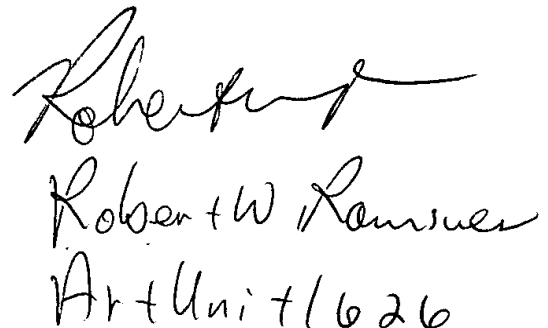 Robert W Ramsuer
Art Unit 1626